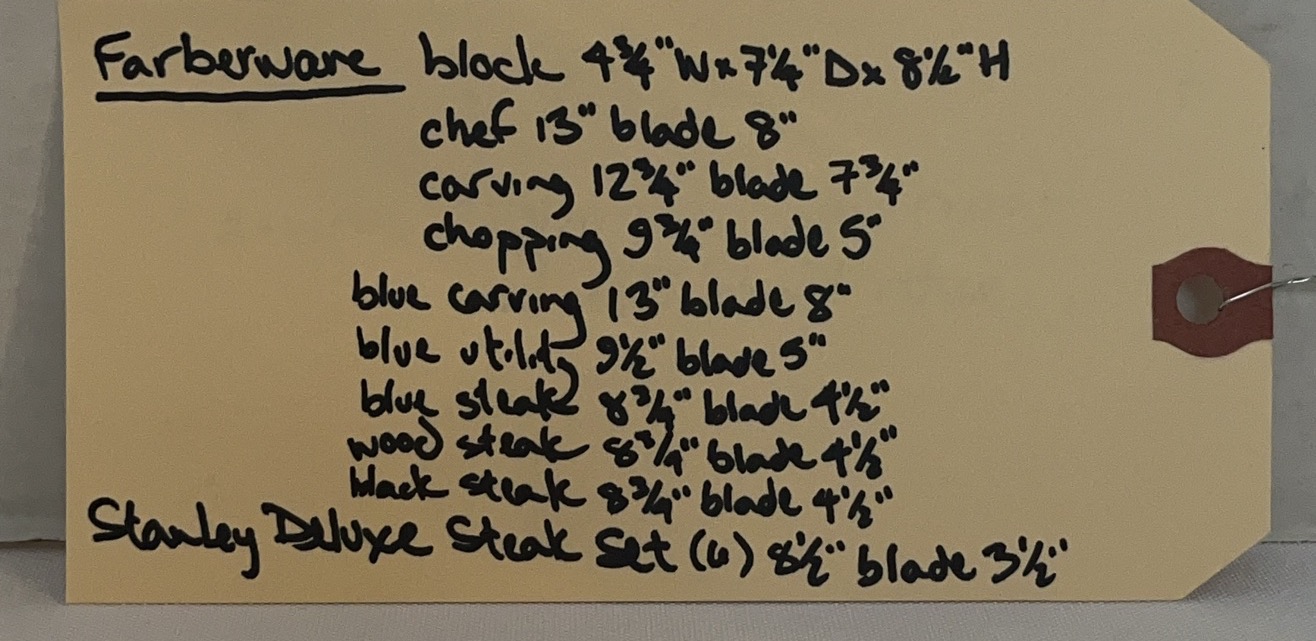 Farberware block 4¾"W x 7¼"D x 8½"H
chef 13" blade 8"
carving 12¾" blade 7¾"
chopping 9¾" blade 5"
blue carving 13" blade 8"
blue utility 9½" blade 5"
blue steak 8¾" blade 4½"
wood steak 8¾" blade 4½"
black steak 8¾" blade 4½"
Stanley Deluxe Steak Set (6) 8½" blade 3½"